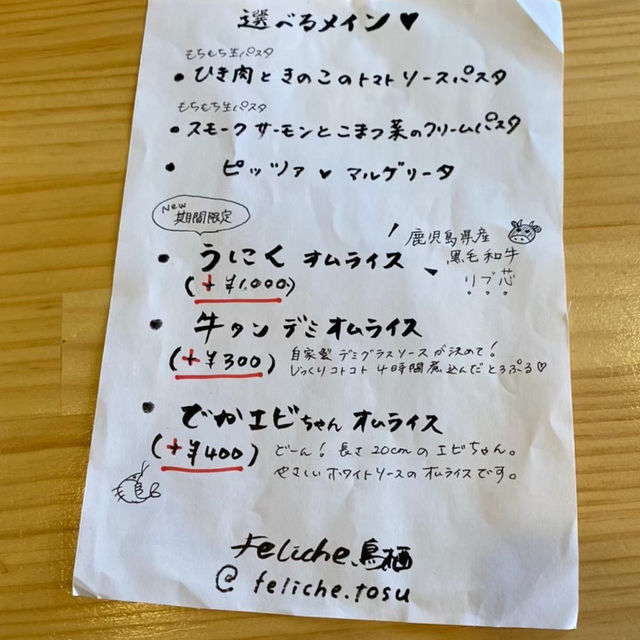 選べるメイン♥
もちもち生パスタ
• ひき肉ときのこのトマトソースパスタ
もちもち生パスタ
• スモークサーモンとこまつ菜のクリームパスタ
• ピッツァ♥マルゲリータ
New
期間限定
• うにく オムライス
(+¥1,000)
鹿児島県産
黒毛和牛
リブ芯
• 牛タンデミオムライス
(+¥300)
自家製デミグラスソースが決めて!
じっくりコトコト4時間煮込んだとろぷる♡
• でかエビちゃんオムライス
(+¥400)
どーん!長さ20cmのエビちゃん。
やさしいホワイトソースのオムライスです。
Feliche.鳥栖
@feliche.tosu